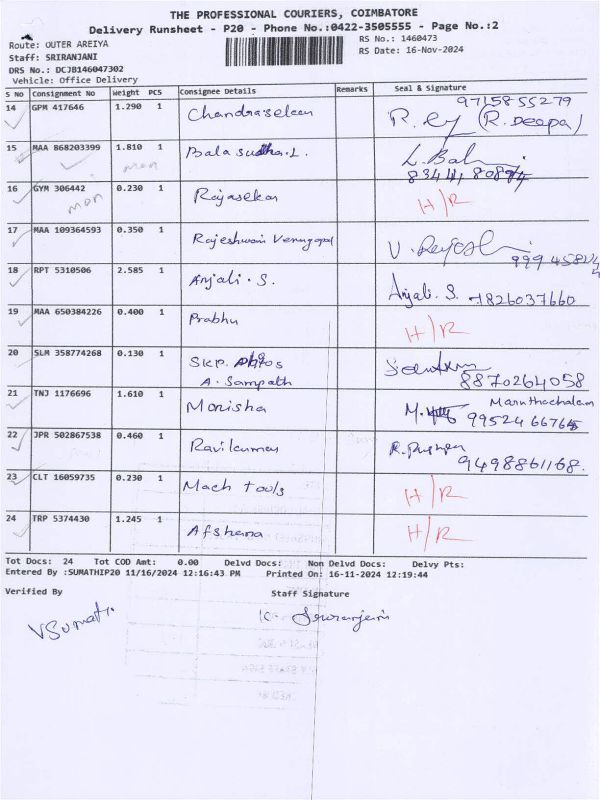 THE PROFESSIONAL COURIERS, COIMBATORE
Delivery Runsheet - P20 - Phone No.:0422-3505555 - Page No.:2
Route: OUTER AREIYA RS No.: 1460473
Staff: SRIRANJANI RS Date: 16-Nov-2024
DRS No.: DCJB146047302
Vehicle: Office Delivery
S No Consignment No Weight PCS Consignee Details Remarks Seal & Signature
14 GPM 417646 1.290 1 Chandrasekar 9715855279
(R. Deepa)
15 MAA 868203399 1.810 1 Bala sudha.L. L. Bal
mon
16 GYM 306442 0.230 1 Rajasekar H/R
mon
17 MAA 109364593 0.350 1 Rajeshwari Venugopal
18 RPT 5310506 2.585 1 Anjali. S. Anjali. S. 7826037660
19 MAA 650384226 0.400 1 Prabhu H/R
20 SLM 358774268 0.130 1 SKP.
A. Sampath 8870264058
21 TNJ 1176696 1.610 1 Monisha Maruthachalam
M.
22 JPR 502867538 0.460 1 Ravikumar R. Pushpa
9498861168.
23 CLT 16059735 0.230 1 Mach tools H/R
24 TRP 5374430 1.245 1 Afshana H/R
Tot Docs: 24 Tot COD Amt: 0.00 Delvd Docs: Non Delvd Docs: Delvy Pts:
Entered By :SUMATHIP20 11/16/2024 12:16:43 PM Printed On: 16-11-2024 12:19:44
Verified By Staff Signature
VSumathi